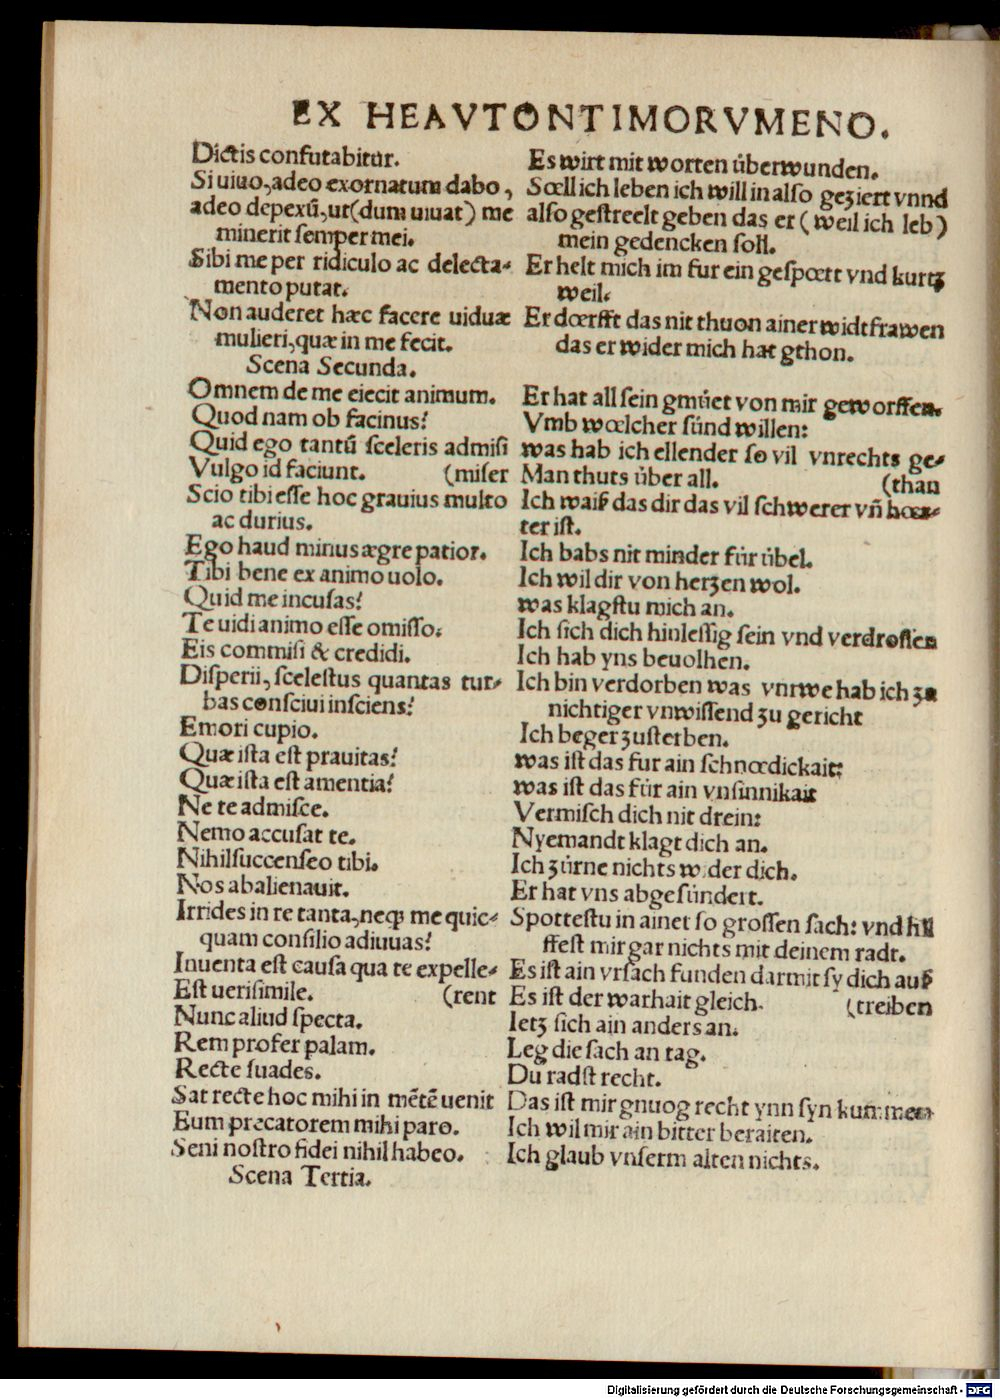 EX HEAVTONTIMORVMENO.
Dictis confutabitur.
Si uiuo, adeo exornatum dabo,
adeo depexũ, ut (dum uiuat) me
minerit semper mei.
Sibi me per ridiculo ac delecta-
mento putat.
Non auderet hæc facere uiduæ
mulieri, quæ in me fecit.
Scena Secunda.
Omnem de me eiecit animum.
Quod nam ob facinus?
Quid ego tantũ sceleris admisi
Vulgo id faciunt. (miser
Scio tibi esse hoc grauius multo
ac durius.
Ego haud minus ægre patior.
Tibi bene ex animo uolo.
Quid me incusas?
Te uidi animo esse omisso.
Eis commisi & credidi.
Disperii, scelestus quantas tur-
bas consciui insciens?
Emori cupio.
Quæ ista est prauitas?
Quæ ista est amentia?
Ne te admisce.
Nemo accusat te.
Nihil succenseo tibi.
Nos abalienauit.
Irrides in re tanta, neqꝫ me quic-
quam consilio adiuuas?
Inuenta est causa qua te expelle-
Est uerisimile. (rent
Nunc aliud specta.
Rem profer palam.
Recte suades.
Sat recte hoc mihi in mẽtẽ uenit
Eum precatorem mihi paro.
Seni nostro fidei nihil habeo.
Scena Tertia.
Es wirt mit worten überwunden.
Sœll ich leben ich will in also geziert vnnd
also gestreelt geben das er (weil ich leb)
mein gedencken soll.
Er helt mich im fur ein gespœtt vnd kurtz
weil.
Er dœrfft das nit thuon ainer widtfrawen
das er wider mich hat gthon.
Er hat all sein gmüet von mir geworffen.
Vmb wœlcher sünd willen:
was hab ich ellender so vil vnrechts ge-
Man thuts über all. (than
Ich waiß das dir das vil schwerer vñ hœr-
ter ist.
Ich babs nit minder für übel.
Ich wil dir von herzen wol.
was klagstu mich an.
Ich sich dich hinlessig sein vnd verdrossen
Ich hab yns beuolhen.
Ich bin verdorben was vnrwe hab ich
nichtiger vnwissend zu gericht
Ich beger zusterben.
was ist das fur ain schnœdickait:
was ist das für ain vnsinnikait
Vermisch dich nit drein:
Nyemandt klagt dich an.
Ich zürne nichts wider dich.
Er hat vns abgesündert.
Spottestu in ainer so grossen sach: vnd hil
ffest mir gar nichts mit deinem radt.
Es ist ain vrsach funden darmit sy dich auß
Es ist der warhait gleich. (treiben
Ietz sich ain anders an.
Leg die sach an tag.
Du radst recht.
Das ist mir gnuog recht ynn syn kummen
Ich wil mir ain bitter beraiten.
Ich glaub vnserm alten nichts.
Digitalisierung gefördert durch die Deutsche Forschungsgemeinschaft - DFG